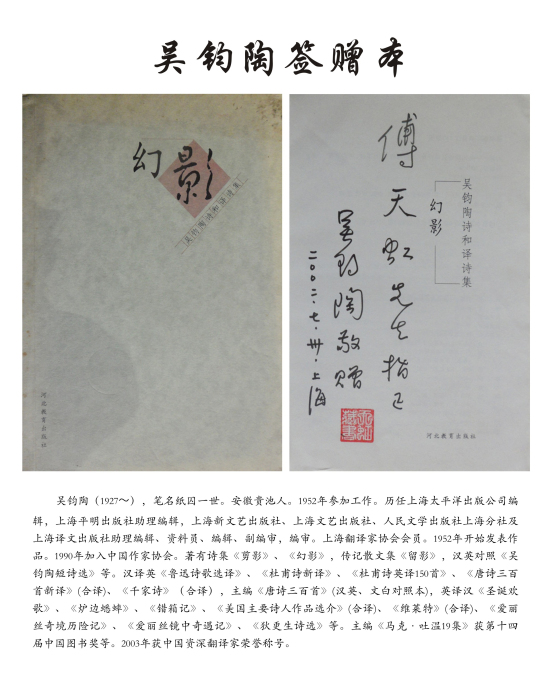 吴钧陶签赠本
幻影
吴钧陶诗和译诗集
河北教育出版社
傅天虹先生指正
吴钧陶敬赠
二〇〇二·七·卅·上海
吴钧陶诗和译诗集
幻影
河北教育出版社
吴钧陶（1927～），笔名纸囚一世。安徽贵池人。1952年参加工作。历任上海太平洋出版公司编
辑，上海平明出版社助理编辑，上海新文艺出版社、上海文艺出版社、人民文学出版社上海分社及
上海译文出版社助理编辑、资料员、编辑、副编审，编审。上海翻译家协会会员。1952年开始发表作
品。1990年加入中国作家协会。著有诗集《剪影》、《幻影》，传记散文集《留影》，汉英对照《吴
钧陶短诗选》等。汉译英《鲁迅诗歌选译》、《杜甫诗新译》、《杜甫诗英译150首》、《唐诗三百
首新译》(合译)、《千家诗》（合译），主编《唐诗三百首》(汉英、文白对照本)，英译汉《圣诞欢
歌》、《炉边蟋蟀》、《错箱记》、《美国主要诗人作品选介》(合译)、《维莱特》(合译)、《爱丽
丝奇境历险记》、《爱丽丝镜中奇遇记》、《狄更生诗选》等。主编《马克·吐温19集》获第十四
届中国图书奖等。2003年获中国资深翻译家荣誉称号。